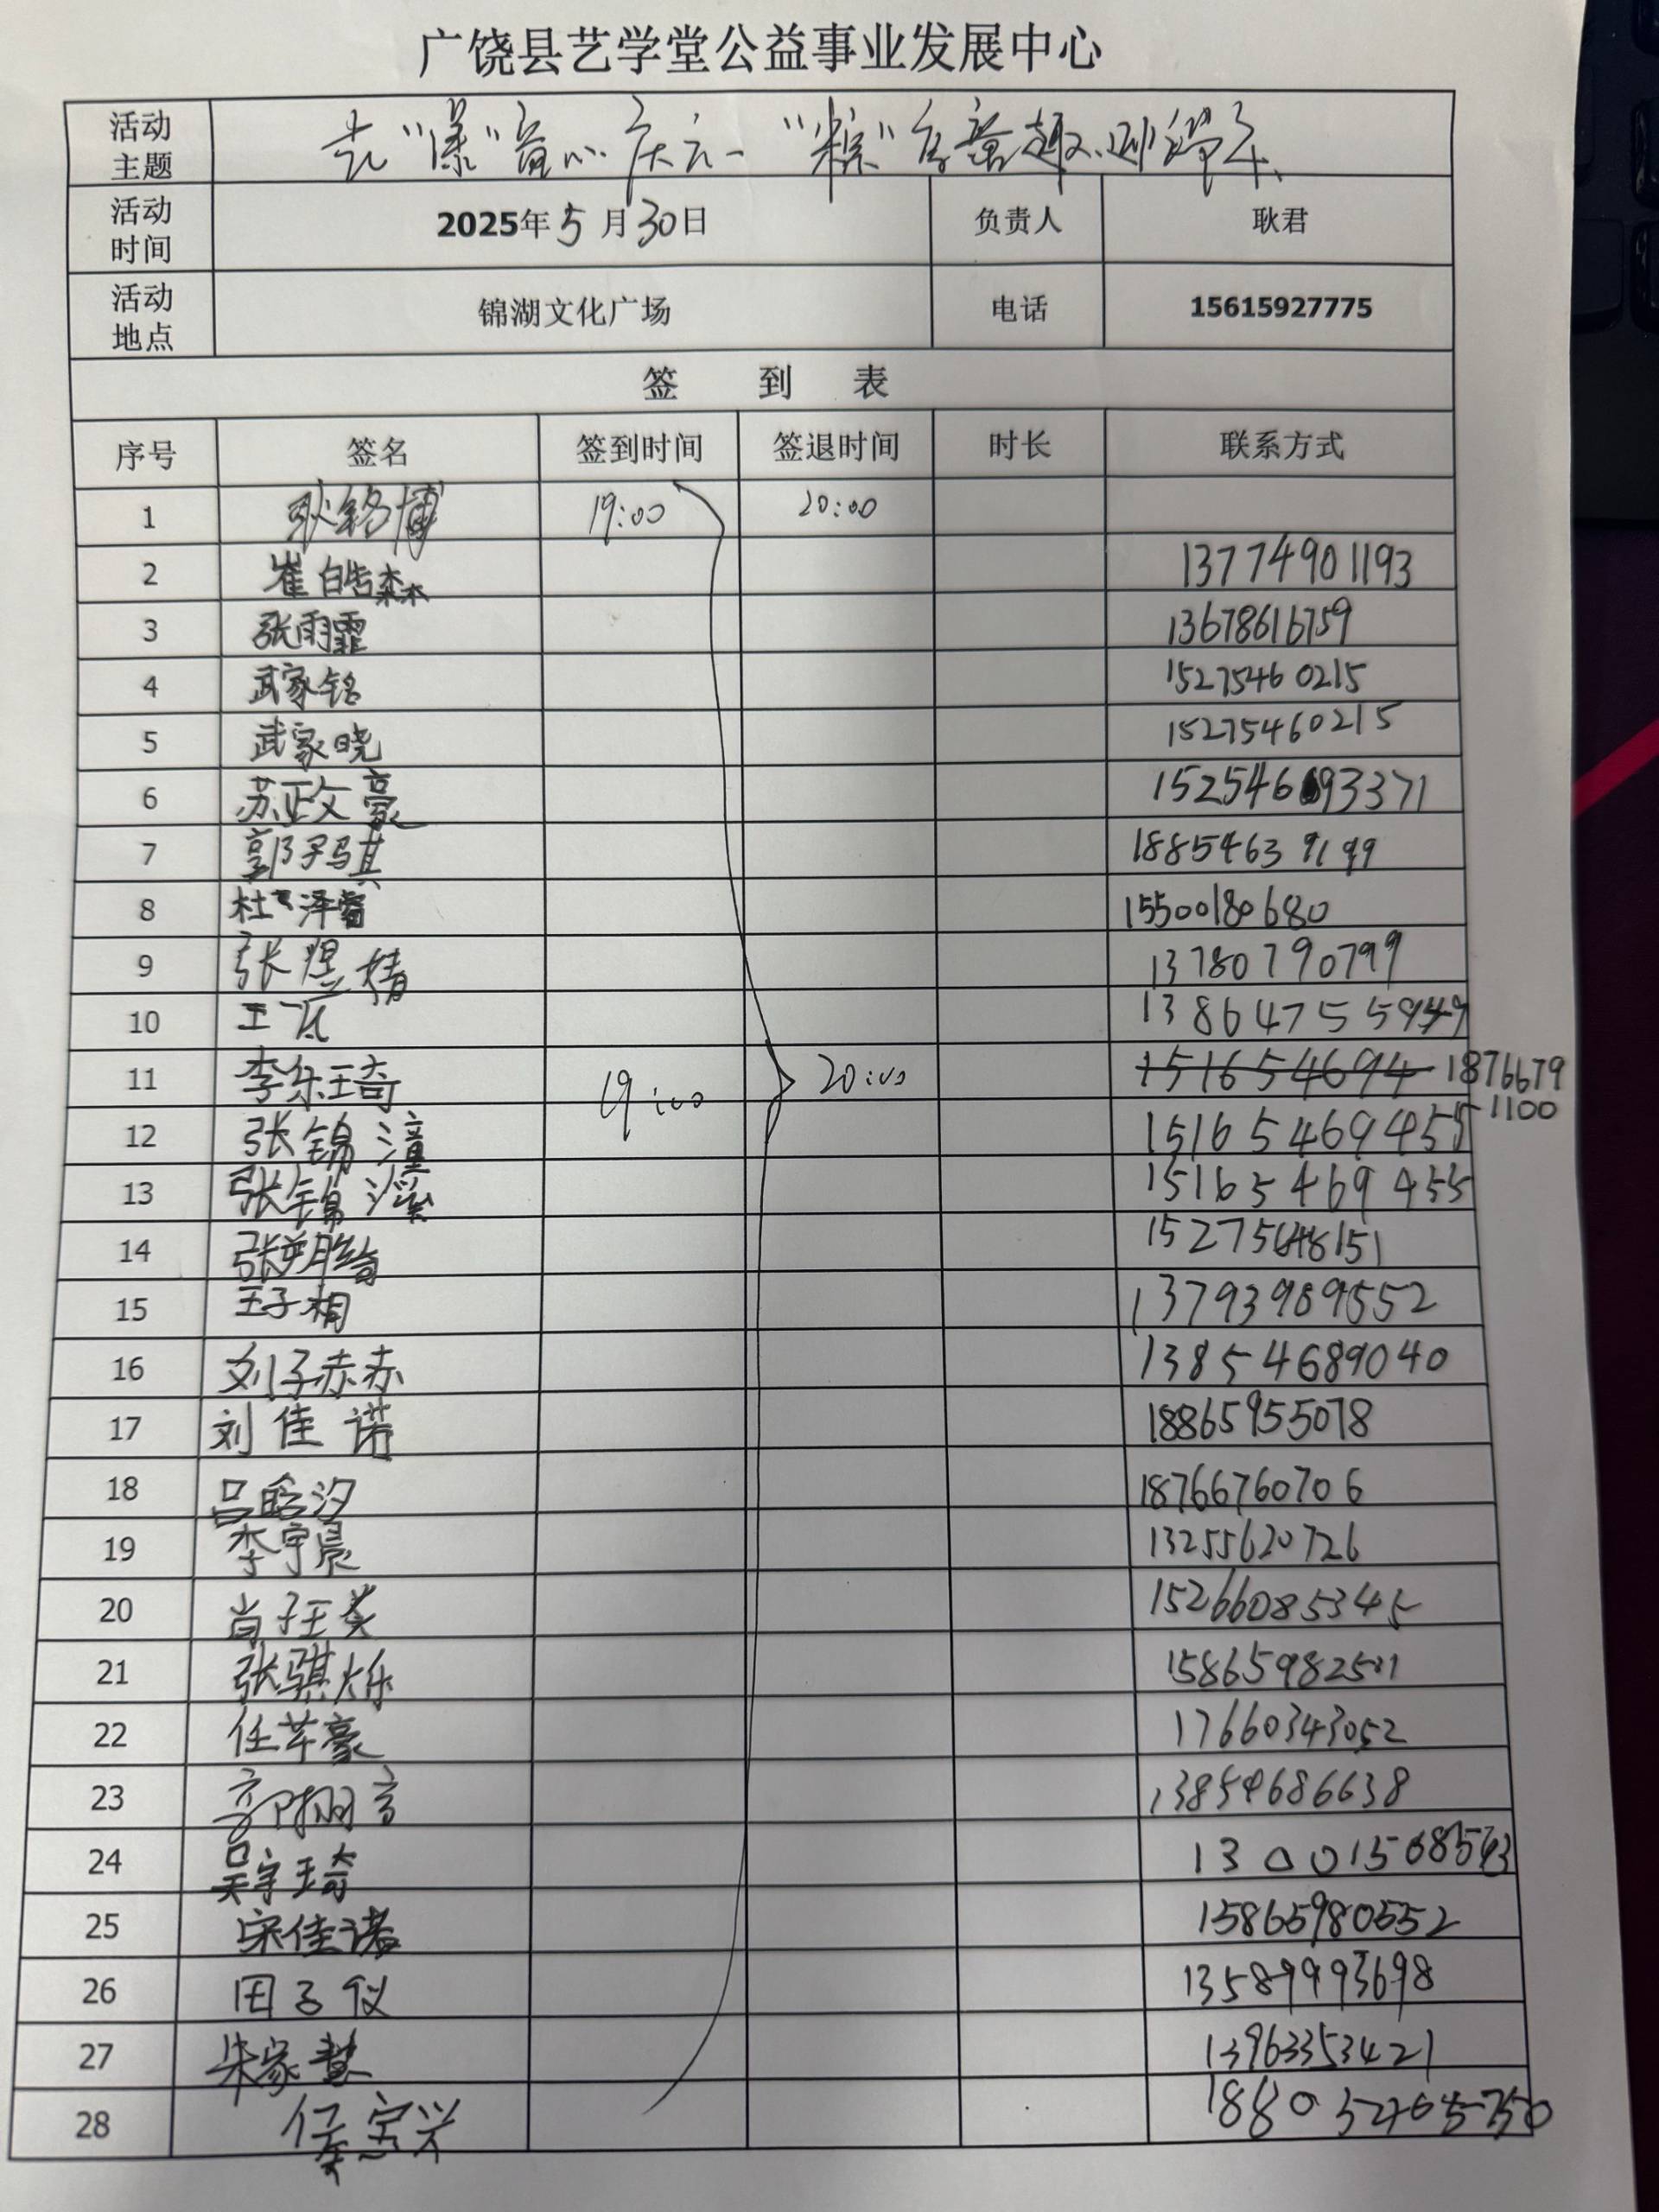 广饶县艺学堂公益事业发展中心
活动主题 艺"漾"童心庆六一 "粽"享童趣迎端午
活动时间 2025年5月30日 负责人 耿君
活动地点 锦湖文化广场 电话 15615927775
签 到 表
序号 签名 签到时间 签退时间 时长 联系方式
1 耿铭博 19:00 20:00
2 崔皓森 13774901193
3 张雨霏 13678616759
4 武家铭 15275460215
5 武家晓 15275460215
6 苏政豪
7 郭子骐 18854639199
8 杜泽睿 15500180680
9 张煜婧 13780790799
10
11 李乐琦 19:00 20:00 151654694 18766791100
12 张锦潼 15165469455
13 张锦溪 15165469455
14
15 王子桐 13793989552
16 刘子赫 13854689040
17 刘佳诺 18865955078
18 吕晗汐 18766760706
19 李宇晨 13255620726
20 肖子瑛 15266085345
21 张骐烁 15865982501
22 任芊豪 17660343052
23 13854686638
24 吴宇琦
25 宋佳诺 15865980552
26 田子仪 13589993698
27 朱家慧 13963353421
28